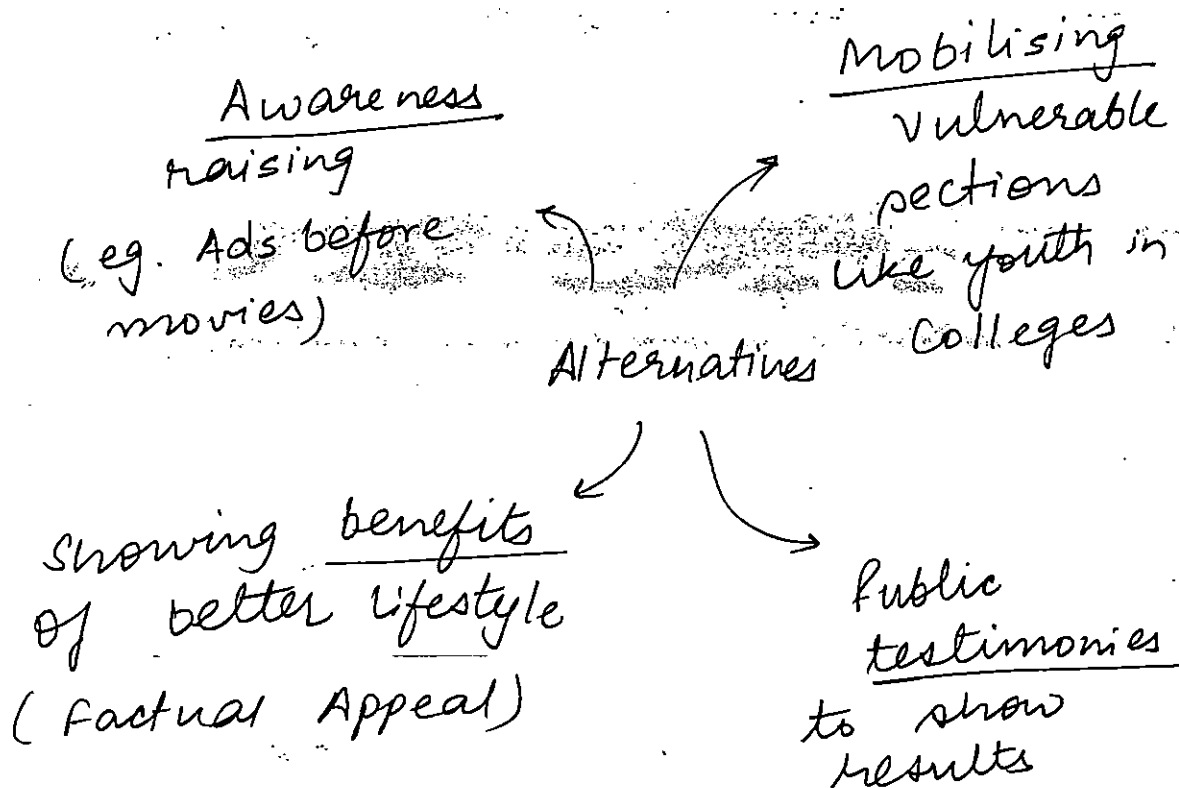 Awareness
raising
(eg. Ads before
movies)
Mobilising
vulnerable
sections
like youth in
Colleges
Alternatives
Showing benefits
of better lifestyle
(Factual Appeal)
Public
testimonies
to show
results